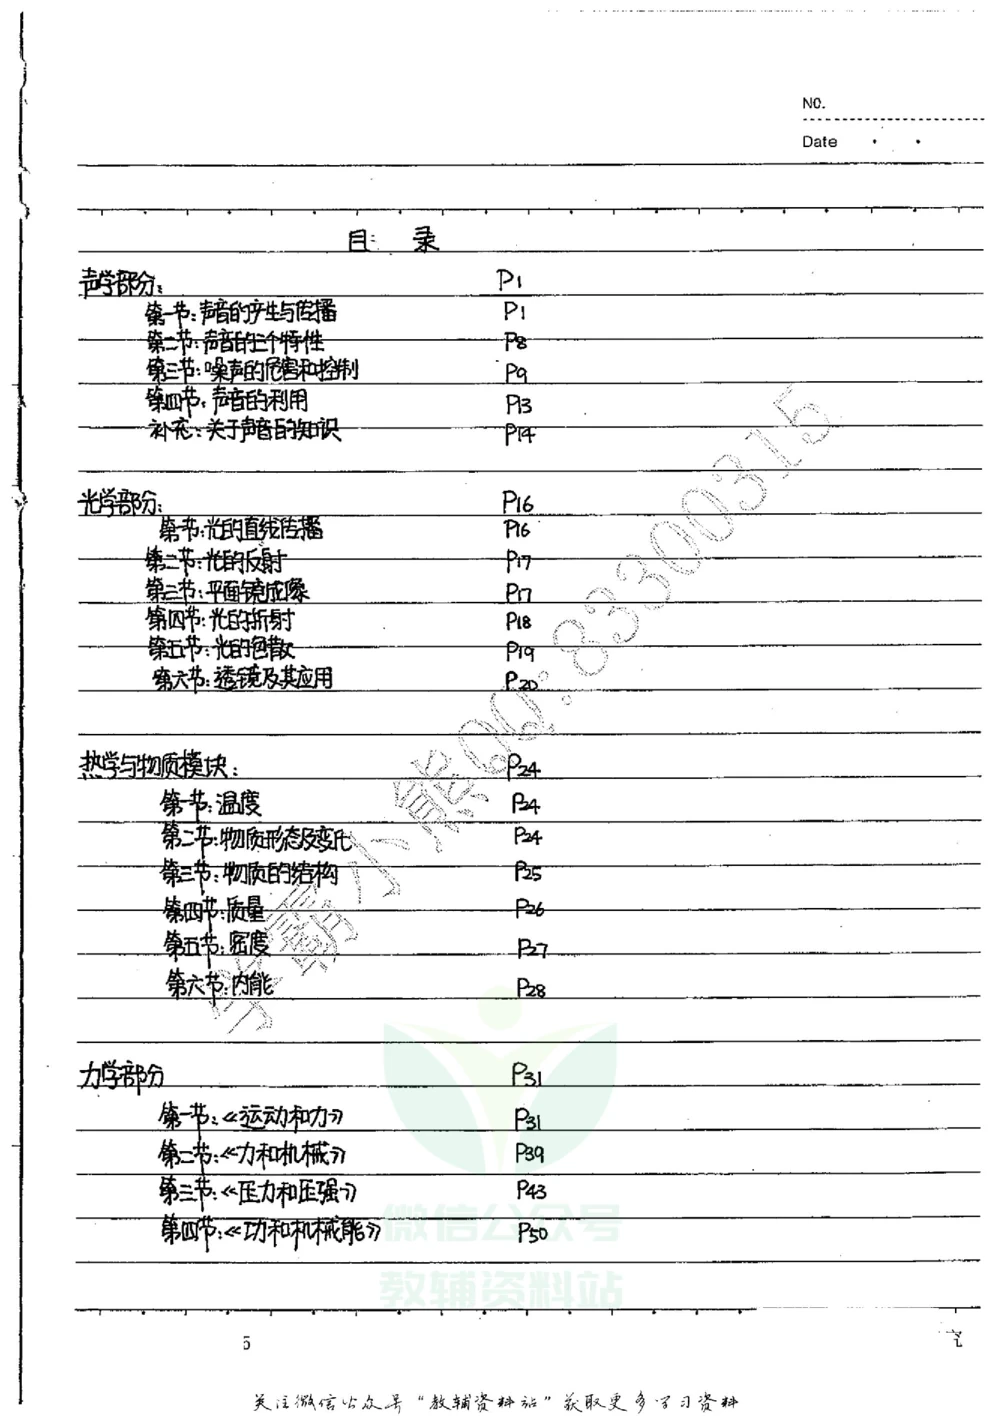 NO.
Date
目 录
声学部分: P1
第一节:声音的产生与传播 P1
第二节:声音的三个特性 P8
第三节:噪声的危害和控制 P9
第四节:声音的利用 P13
补充:关于声音的知识 P14
光学部分: P16
第一节:光的直线传播 P16
第二节:光的反射 P17
第三节:平面镜成像 P17
第四节:光的折射 P18
第五节:光的色散 P19
第六节:透镜及其应用 P20
热学与物质模块: P24
第一节:温度 P24
第二节:物质形态及变化 P24
第三节:物质的结构 P25
第四节:质量 P26
第五节:密度 P27
第六节:内能 P28
力学部分 P31
第一节:《运动和力》 P31
第二节:《力和机械》 P39
第三节:《压力和压强》 P43
第四节:《功和机械能》 P50
学霸小熊QQ:83300315
微信公众号
教辅资料站
5
关注微信公众号“教辅资料站”获取更多学习资料